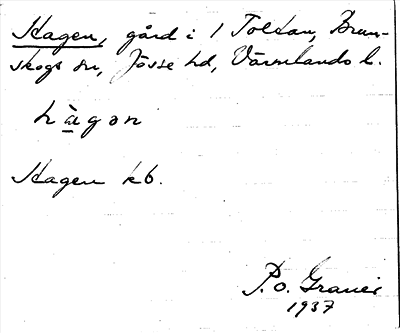 Hagen, gård i 1 Toltan, Brun-
skogs sn, Jösse hd, Värmlands l.
hàgən
Hagen kb.
P.O. Graner
1937